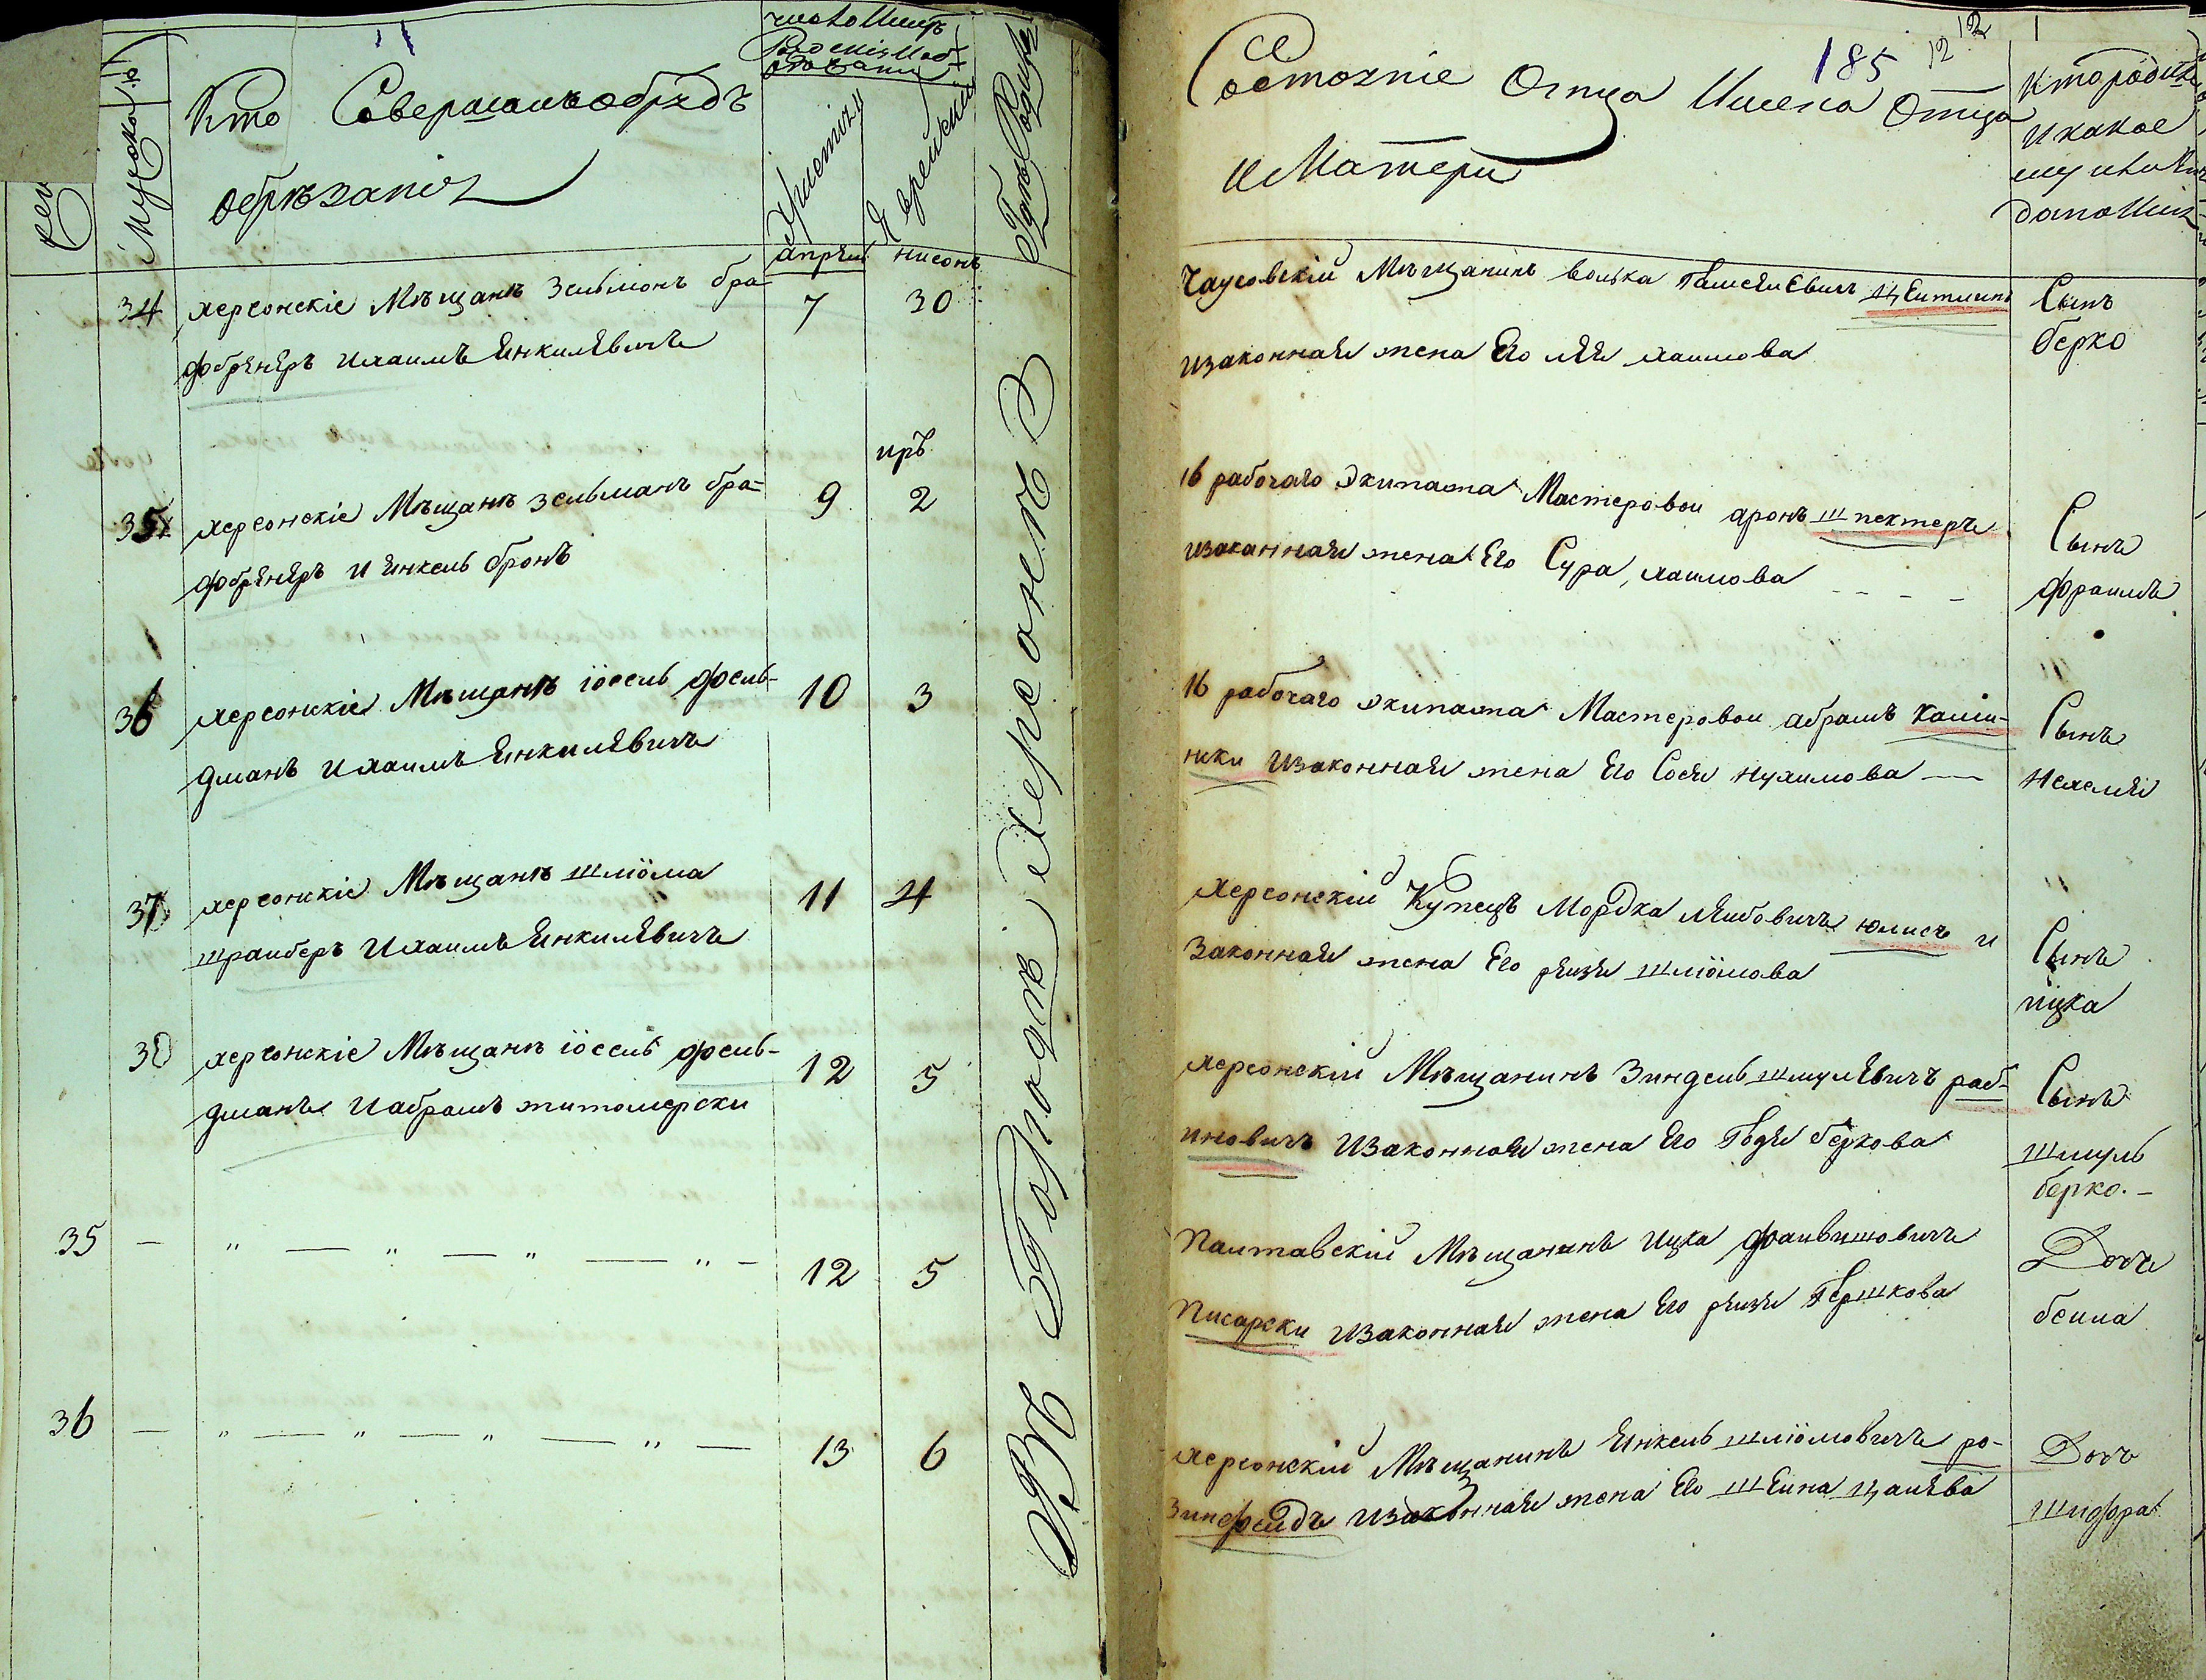 Кто Совершалъ обрядъ
обрѣзанія
Мужеска
Христіян
Еврейски
Гдѣ Родился
апрѣль нисонъ
34 херсонскіе Мѣщанѣ Зельмонъ бра-
фобрѣнѣръ и хаимъ Енкилѣвичъ
7 30
иръ
35 херсонскіе Мѣщанѣ зельманъ бра-
фобрѣнѣръ и янкель бронъ
9 2
36 херсонскіе Мѣщанѣ іосель фель-
дманъ и хаимъ Енкилѣвичъ
10 3
37 херсонскіе Мѣщанѣ шліома
шраиберъ и хаимъ Енкилѣвичъ
11 4
38 херсонскіе Мѣщанѣ іосель фель-
дманъ и абрамъ житомерски
12 5
35 — „ — „ — „ — „ —
12 5
36 — „ — „ — „ — „ —
13 6
Въ Городѣ Херсонѣ
185 12 12
Состояніе Отца Имена Отца
и Матери
Кто родился
и какое
ему или ей
дано Имя
Чаусовскій Мѣщанинъ волька Цеитлинъ
изаконная жена Его лея хаимова
Сынъ
берко
16 рабочаго Экипажа Мастеровои аронъ шпектеръ
изаканная жена Его Сура, хаимова
Сынъ
фроимъ
16 рабочаго экипажа Мастеровои абрамъ камин-
нски изаконная жена Его Сося нухимова —
Сынъ
Нехемия
херсонскій Купецъ Мордка лейбовичъ юлисъ и
Законная жена Его рейзя шліомова
Сынъ
ицка
херсонскій Мѣщанинъ Зиндель шмулѣвичъ раб-
иновичъ изаконная жена Его Годя беркова
Сынъ
шмуль
берко. –
Палтавскій Мѣщанинъ ицка фаивишовичъ
Писарски изаконная жена Его рейзя Гершкова
Дочь
беила
херсонскій Мѣщанинъ Енкель шліомовичъ ро-
зинфелдъ изаконная жена Его шЕина
Дочь
шифра